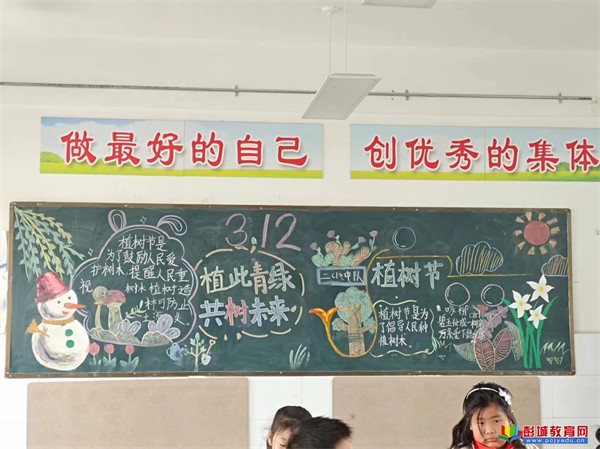 做最好的自己
创优秀的集体
3.12
植树节是
为了鼓励人民爱
护树木 提醒人民重
视
树林 植树造
林可防止
植此青绿
共树未来
植树节
植树节是为
了倡导人民种
植树木
咏柳
碧玉妆成一树
万条垂下
彭城教育网
www.pcjyedu.cn